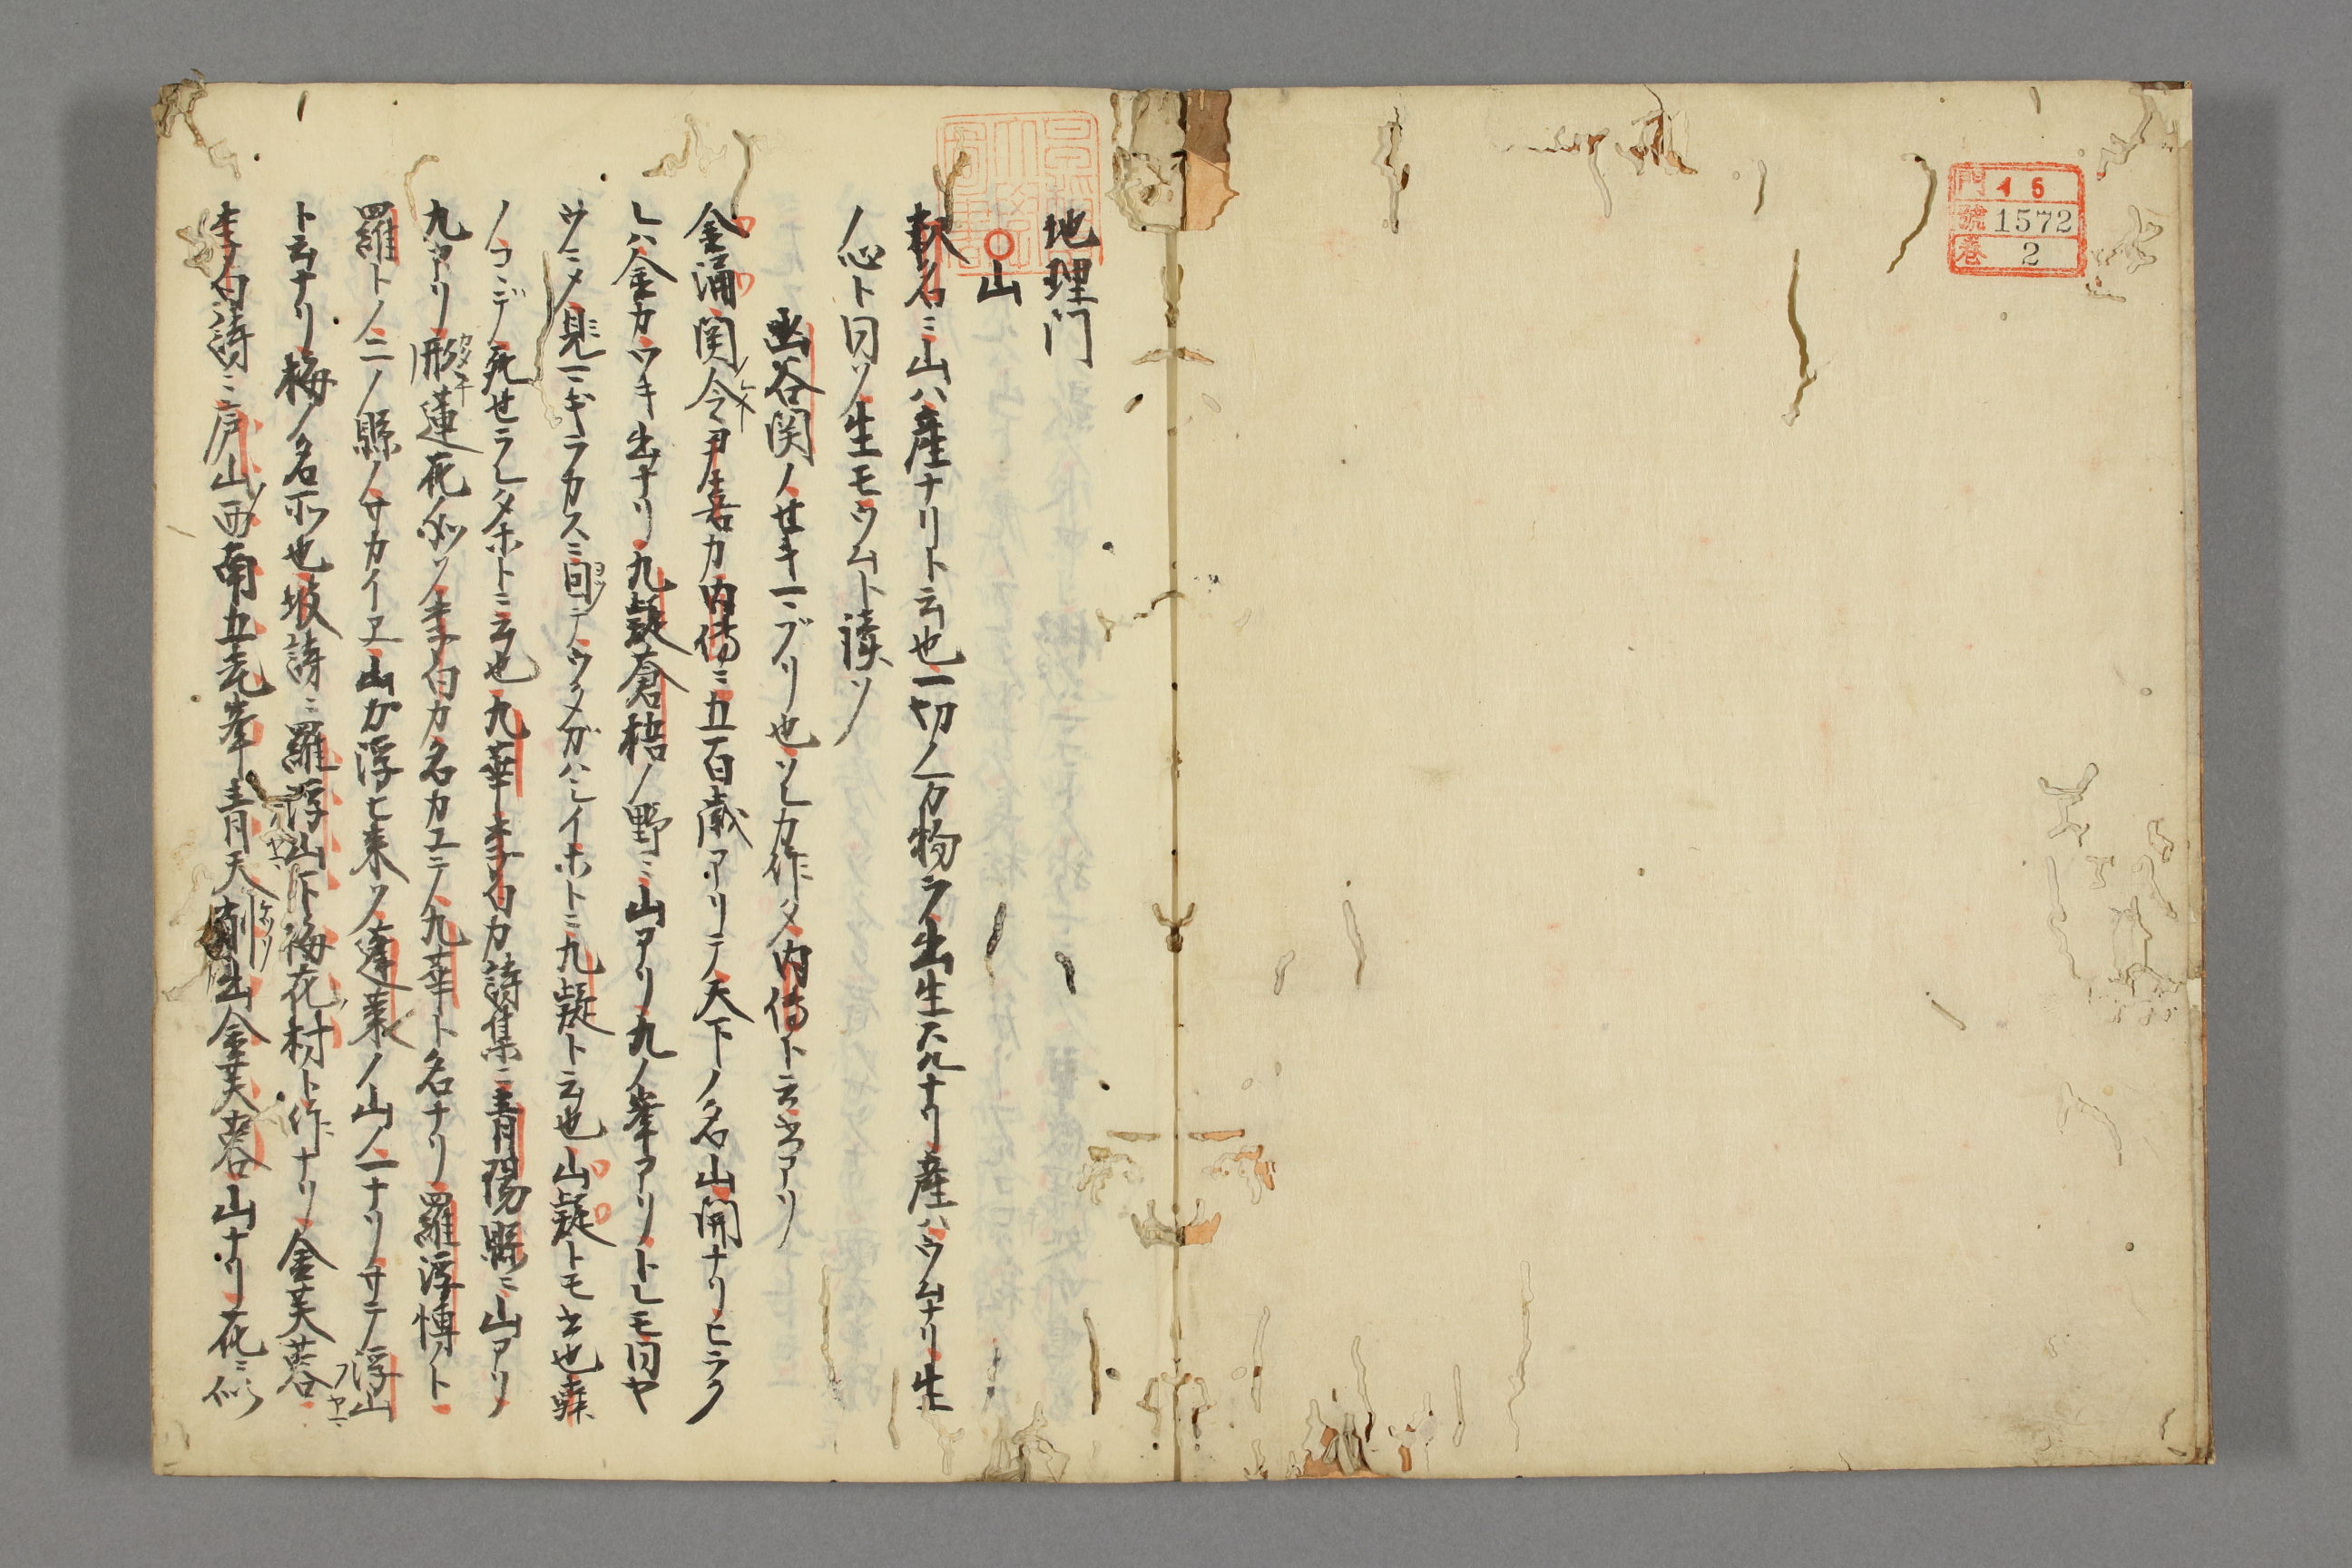 門 45
號 1572
巻 2
地理门
○山
釈名ニ山ハ産ナリト云也一切ノ万物ヲ出生スルナリ産ハウムナリ生
ノ心ト同ソ生モウムト讀ソ
凾谷関ノせキ一ブリ也ソレカ作タ内傳ト云書アリ
金涌 関令尹喜カ内傳ニ五百歳アリテ天下ノ名山開ナリヒラク
レハ金カワキ出ナリ九疑蒼梧ノ野ニ山アリ九ノ峯アリトレモ同ヤ
ウニメ見一ギラカスミ回テウタガハシイホトニ九疑ト云也山疑トモ云也舜
ノコヽデ死せラレタホトニ云也九華李白カ詩集ニ青陽縣ニ山アリ
九アリ形蓮花ノ似ソ李白カ名カエテ九華ト名ナリ羅浮博ト
羅トノ二ノ縣ノサカイヱ山カ浮ヒ来ソ蓬莱ノ山ノ一ナリサテ浮山
ト云ナリ梅ノ名所也坡詩ニ羅浮山下梅花村ト作ナリ金芙蓉
李白詩ニ庐山西南五老峯青天削出金芙蓉山ナリ花ニ似